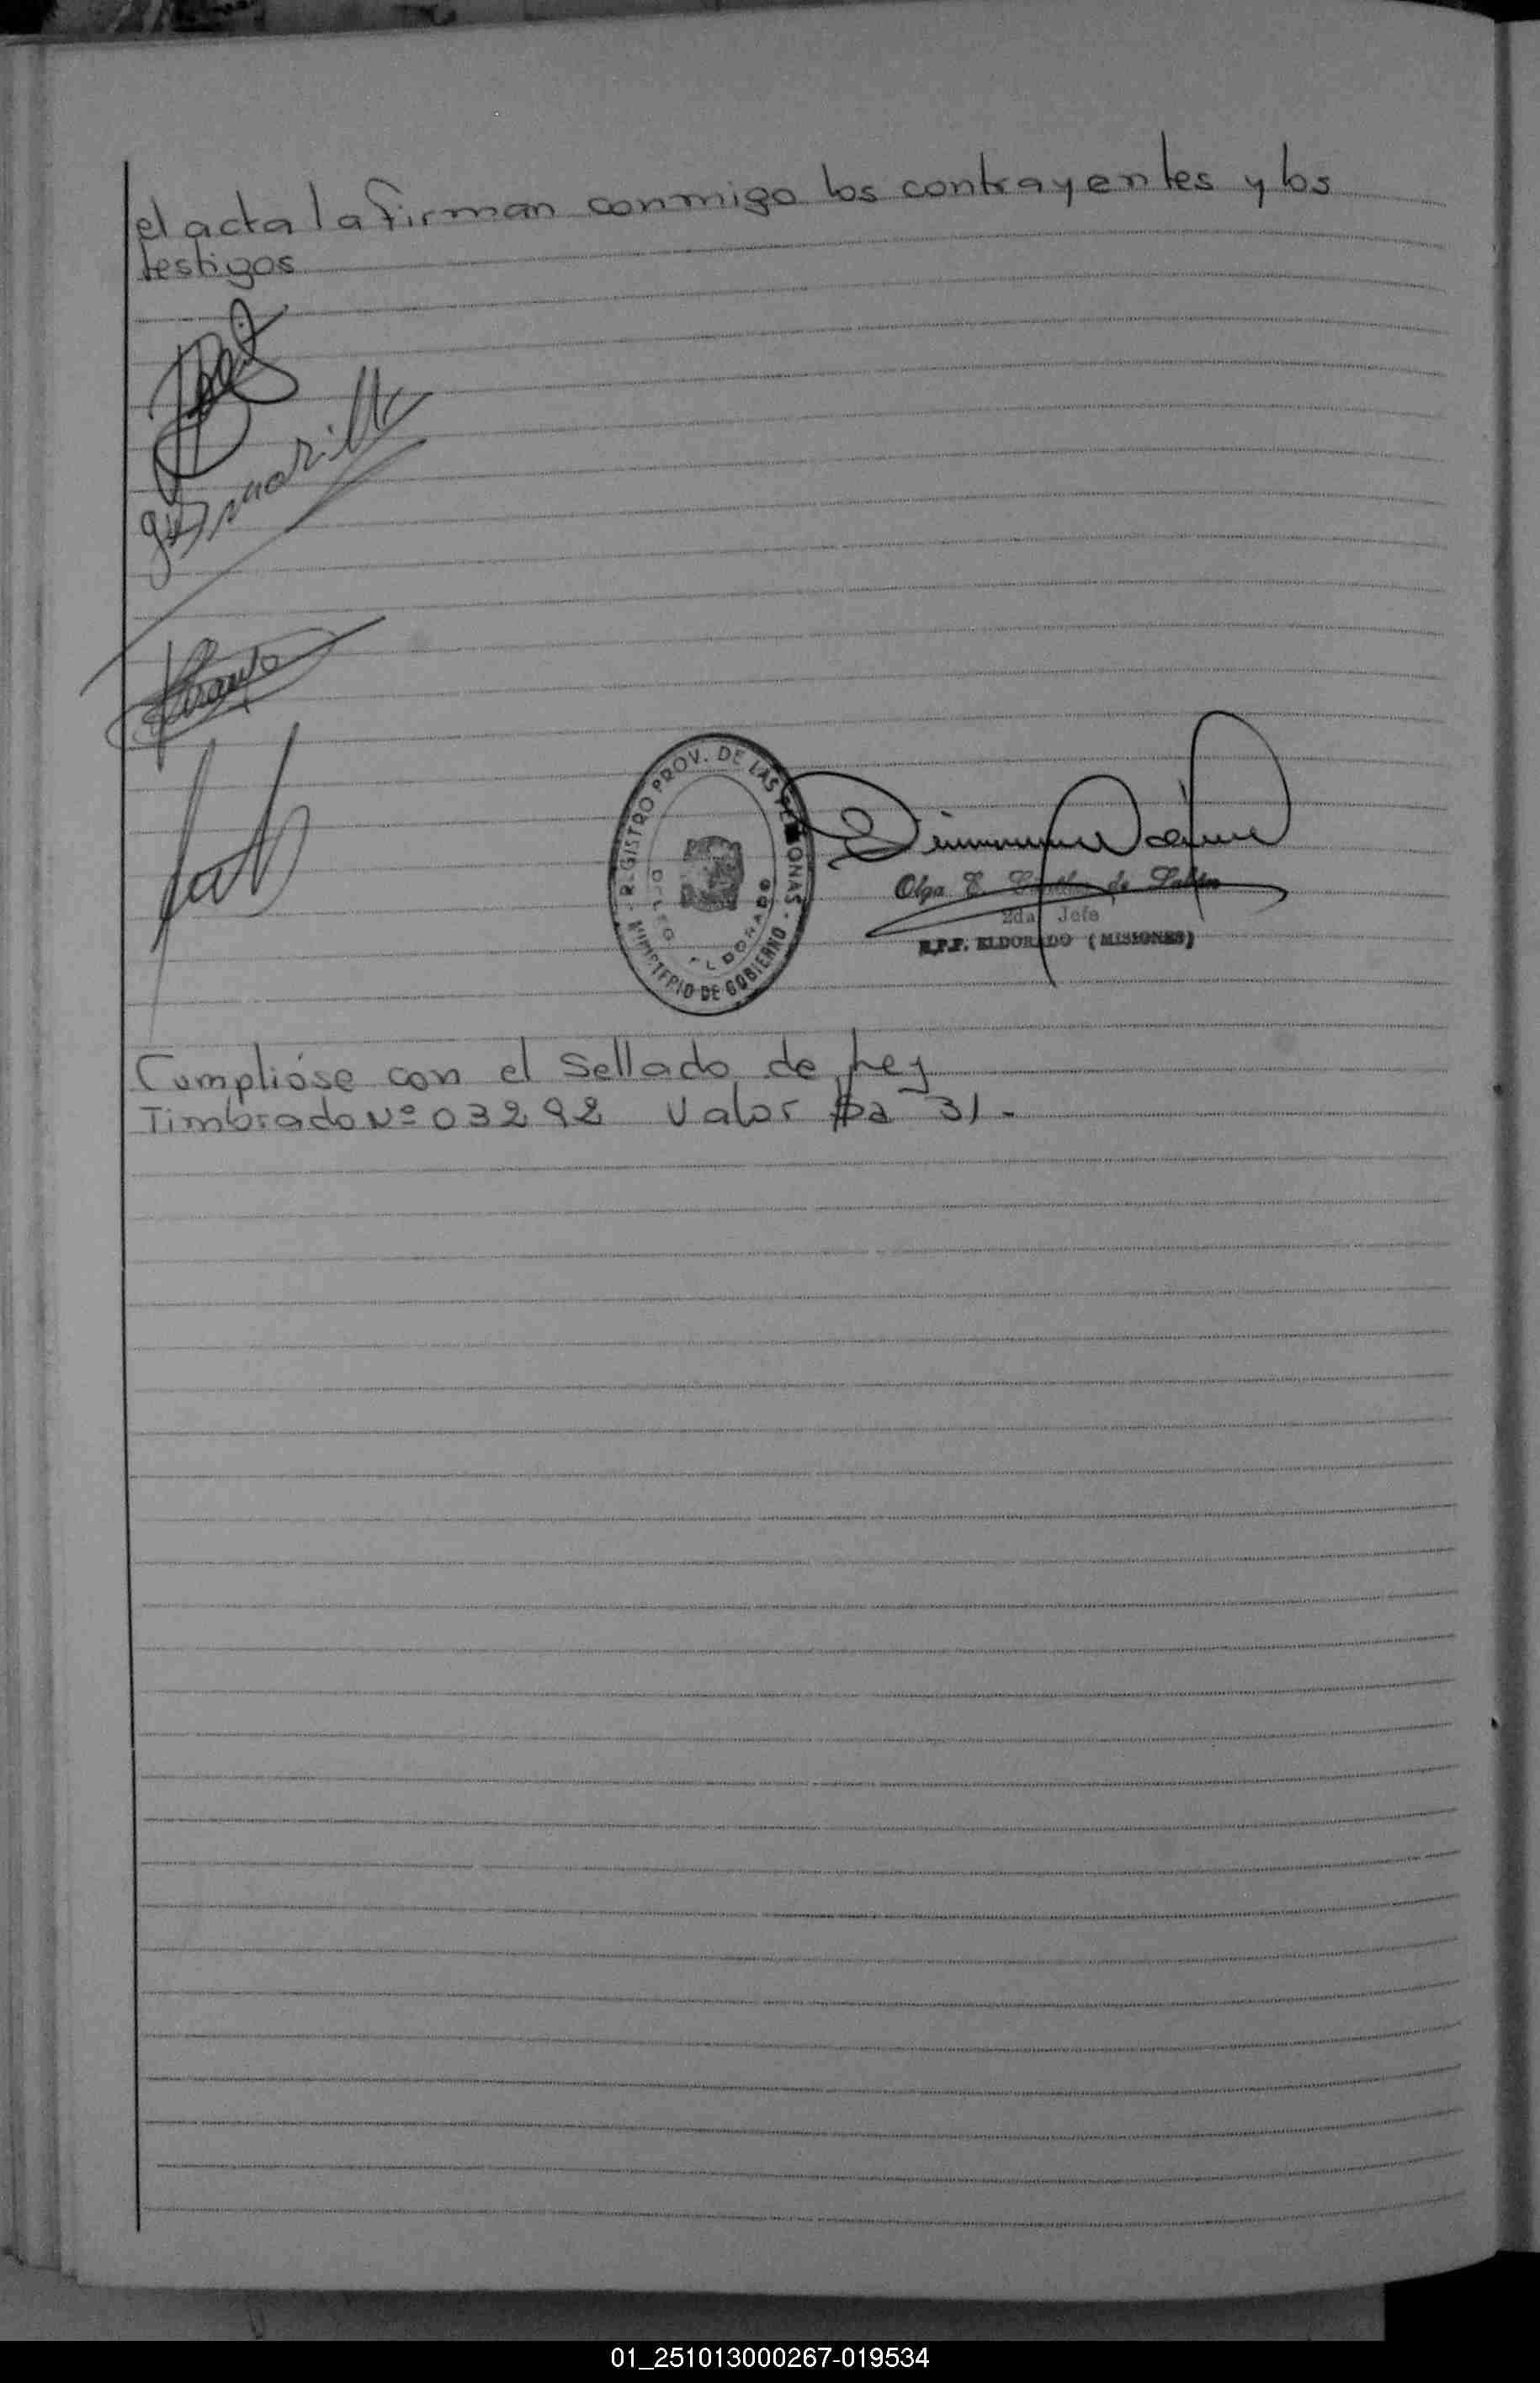 el acta la firman conmigo los contrayentes y los
testigos
REGISTRO PROV. DE LAS PERSONAS
ELDORADO
MINISTERIO DE GOBIERNO
Olga E. de
2da Jefe
R.P.P. ELDORADO (MISIONES)
Cumplióse con el sellado de Ley
Timbrado Nº 03292 Valor $a 31.-
01_251013000267-019534